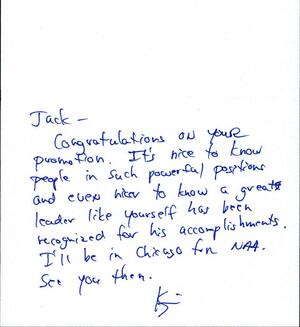 Jack -
Congratulations on your
promotion. It's nice to know
people in such powerful positions
and even nicer to know a great
leader like yourself has been
recognized for his accomplishments.
I'll be in Chicago for NAA.
See you then.
K